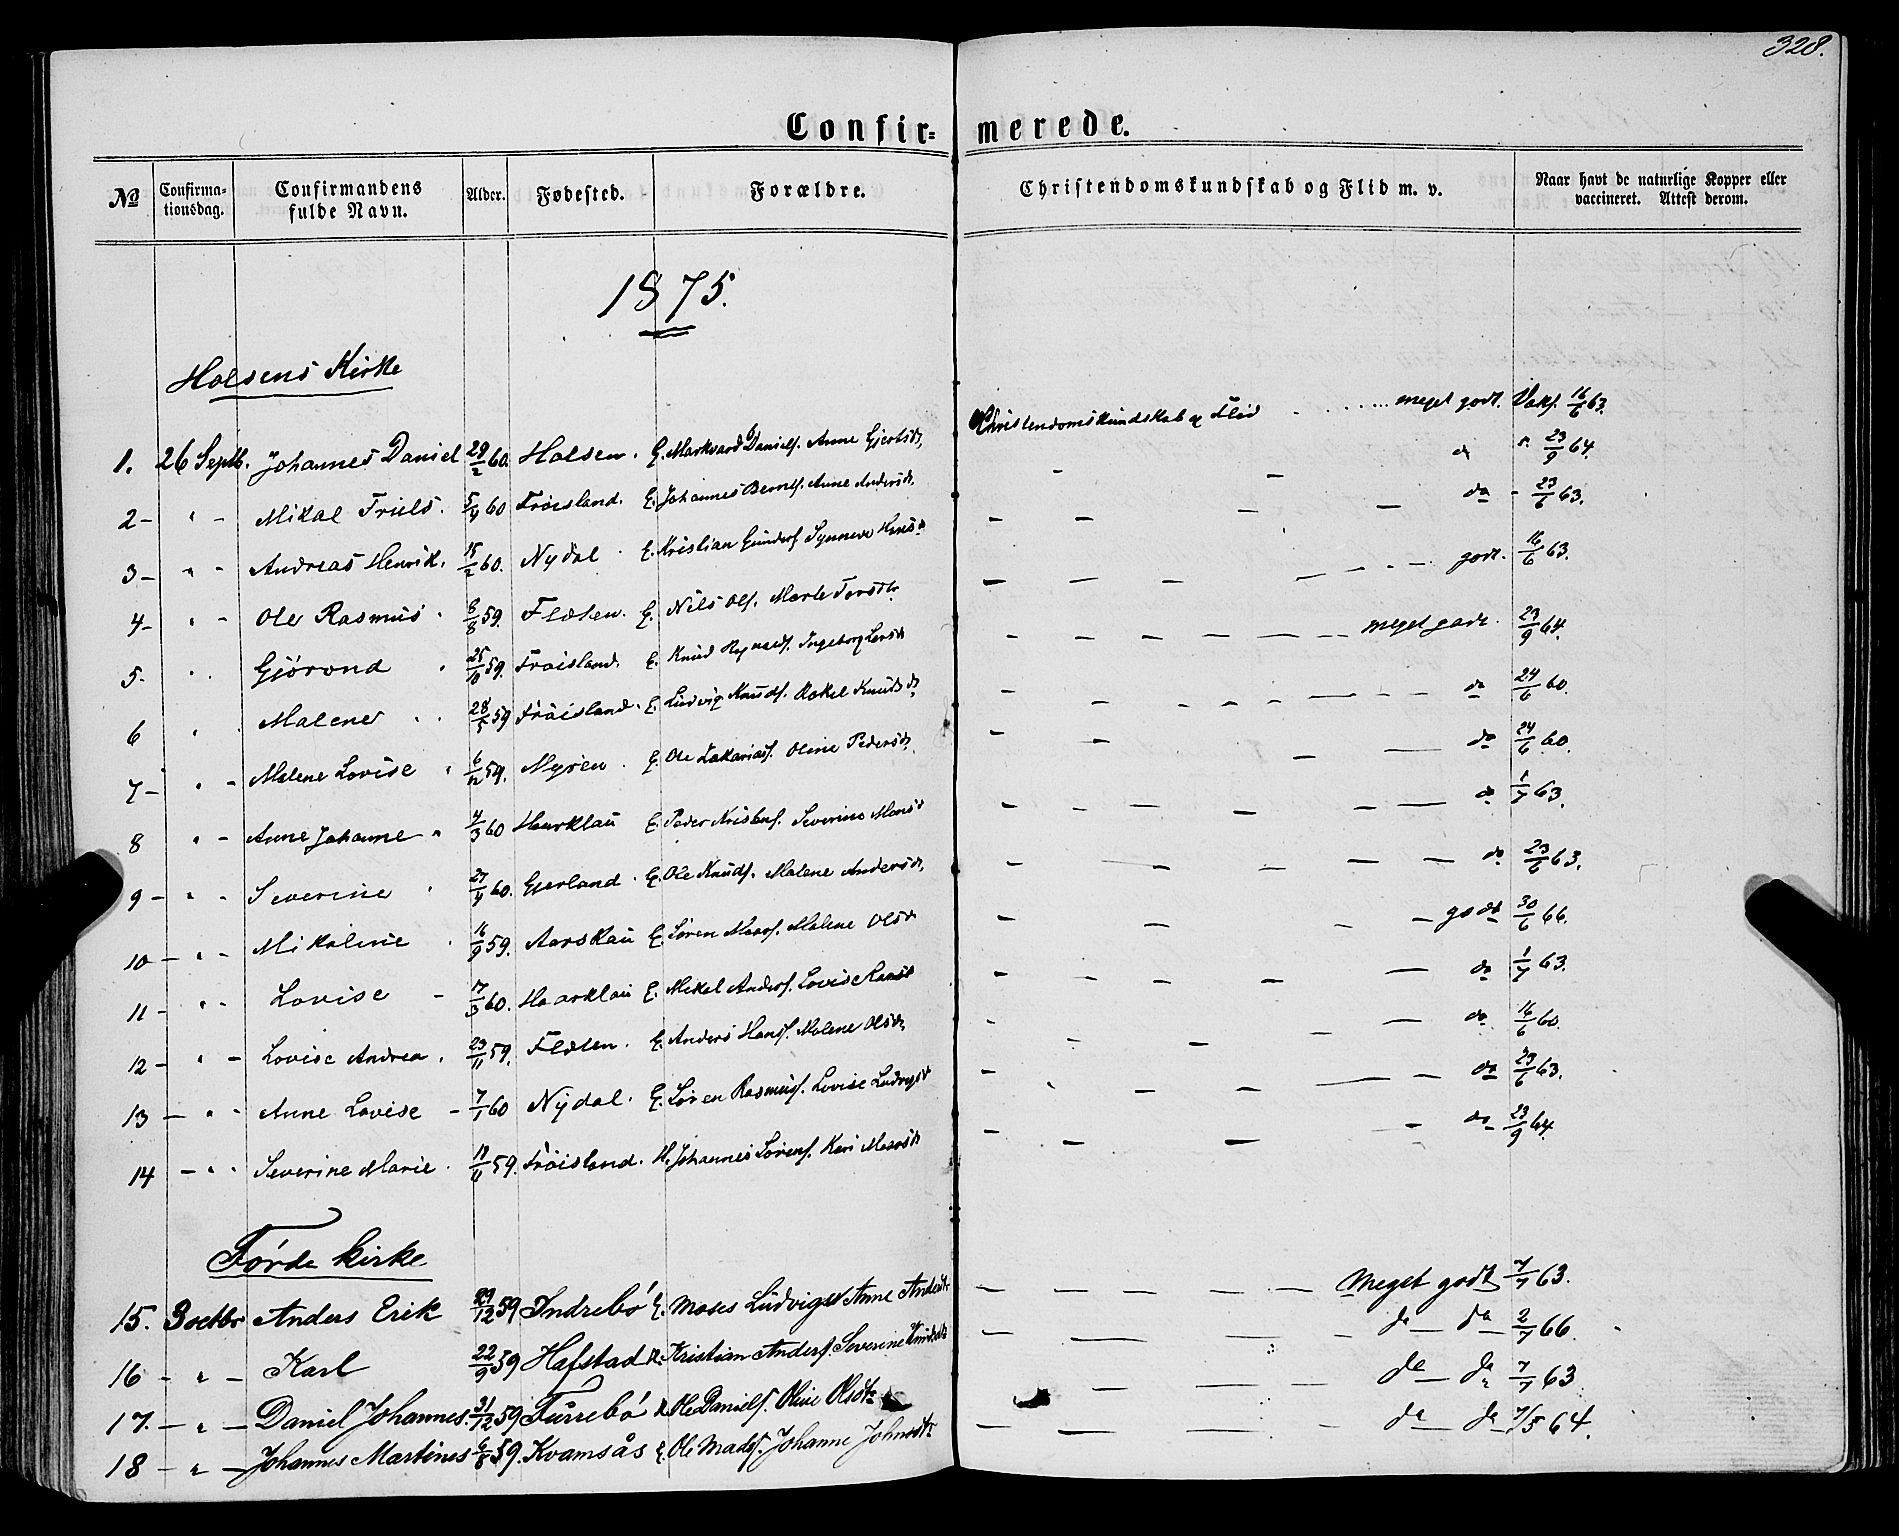 328.
Confir= merede.
No Confirma=tionsdag. Confirmandens fulde Navn. Alder. Fødested. Forældre. Christendomskundskab og Flid m. v. Naar havt de naturlige Kopper eller vaccineret. Attest derom.
1875.
Holsens Kirke
1. 26 Septb. Johannes Daniel 29/2 60. Holsen. E. Markvard Daniels. Anne Gjertsdr. Christendomskundskab og Flid meget godt. Vakf. 16/6 63.
2 - " - Mikal Friis. 5/4 60 Frøisland. E. Johannes Berns. Anne Andersdr. do " 23/9 64.
3 - " - Andreas Henrik. 15/2 60. Nydal. E. Kristian Gunders. Synneve Hansdr do - 23/6 63.
4 - " - Ole Rasmus. 8/8 59. Flæten. E. Nils Ols. Marte Torsdtr. godt. 16/6 63.
5 - " Gjørond 25/10 59. Frøisland. E. Knud Ingeborg Larsdr meget godt. 23/9 64.
6 " Malene 28/5 59 Frøisland. E. Ludvig Knuds. Rakel Knudsdr do 24/6 60.
7 - " - Malene Lovise 6/12 59. Myren. E. Ole Zakarias. Oline Pedersdr. do 24/6 60.
8 " - Anne Johanne " 4/3 60 Haarklau E. Peder Kristens. Severine Monsdr do 1/7 63.
9 - " - Severine 27/4 60. Gjerland. E. Ole Knuds. Malene Andersdr. do 23/6 63.
10 - " - Mikaline 16/9 59. Aarskau E. Søren Mads. Malene Olsdr - godt 30/6 66.
11 - " - Lovise - 17/3 60. Haarklau E. Mikal Anders. Lovise do 1/7 63.
12 - " - Lovise Andrea. 23/11 59. Flæten. E. Anders Hans. Malene Olsdr. do 16/6 60.
13 - " - Anne Lovise - 7/1 60 Nydal. E. Søren Rasmus. Lovise Ludvigsdr do 23/6 63.
14 - " - Severine Marie. 11/11 59. Frøisland. E. Johannes Sørens. Kari Madsdr do 23/9 64.
Førde kirke
15. 3 octbr Anders Erik 29/12 59 Indrebø E. Moses Ludvigs. Anne Andersdtr Meget godt 7/7 63.
16 - " - Karl 22/9 59 Hafstad E. Kristian Anders. Severine Knudsdtr do - do - 2/7 66.
17. - " - Daniel Johannes. 31/12 59 Furrebø E. Ole Daniels. Oline Olsdtr do - do 7/7 63
18 - " - Johannes Martinus 6/8 59. Kvamsås E. Ole Mads. Johanne Johnsdtr do - do 7/5 64.